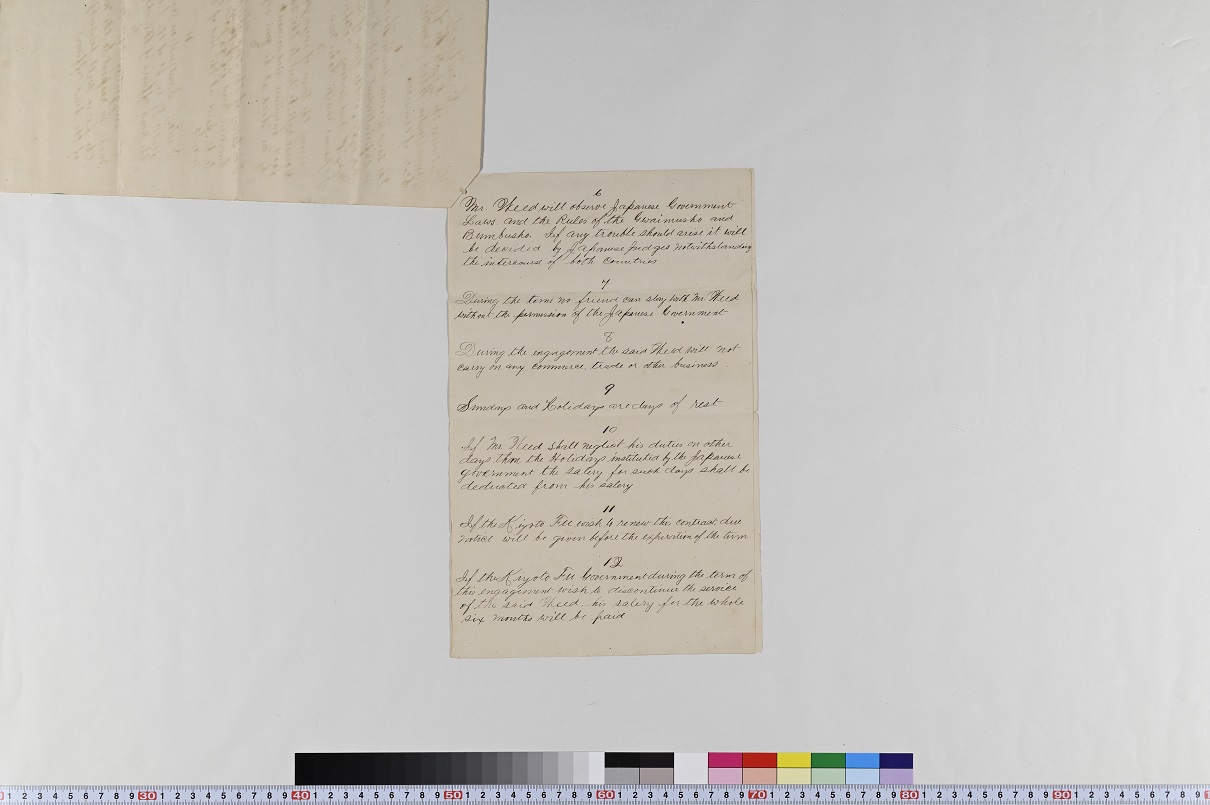 6
Mr. Weed will observe Japanese Government
Laws and the Rules of the Gwaimusho and
Bumbusho. If any trouble should arise it will
be decided by Japanese Judges notwithstanding
the intercourse of both countries
7
During the term no friend can stay with Mr. Weed
without the permission of the Japanese Government
8
During the engagement the said Weed will not
carry on any commerce, trade or other business
9
Sundays and Holidays are days of rest
10
If Mr. Weed shall neglect his duties on other
days than the Holidays instituted by the Japanese
government the salery for such days shall be
deducated from his salery
11
If the Kiyoto Fu wish to renew this contract, due
notice will be given before the expiration of the term
12
If the Kiyoto Fu Government during the term of
this engagement wish to discontinue the service
of the said Weed his salery for the whole
six months will be paid
30 1 2 3 4 5 6 7 8 9 40 1 2 3 4 5 6 7 8 9 50 1 2 3 4 5 6 7 8 9 60 1 2 3 4 5 6 7 8 9 70 1 2 3 4 5 6 7 8 9 80 1 2 3 4 5 6 7 8 9 90 1 2 3 4 5 6 7 8 9